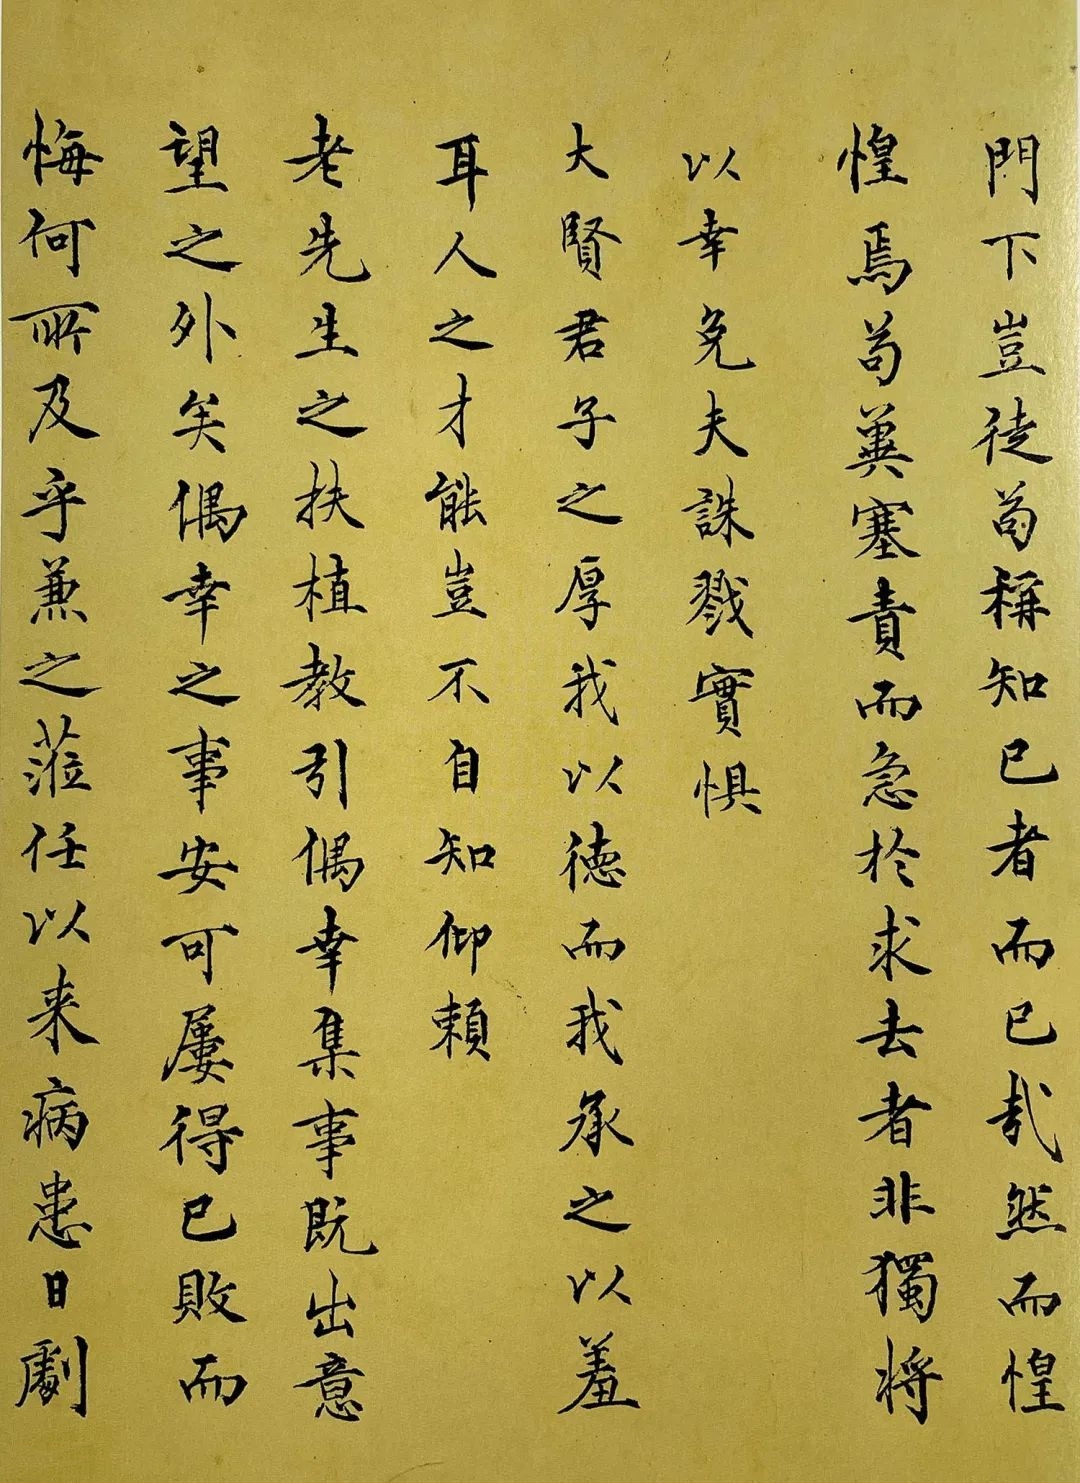 門下豈徒苟稱知已者而已哉然而惶
惶焉苟冀塞責而急於求去者非獨將
以幸免夫誅戮實惧
大賢君子之厚我以徳而我承之以羞
耳人之才能豈不自知仰頼
老先生之扶植教引偶幸集事既出意
望之外矣偶幸之事安可屢得已敗而
悔何所及乎兼之蒞任以来病患日劇